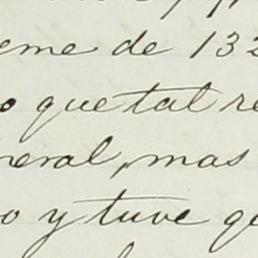 eme de 132
o que tal re
neral, mas
o y tuve qu